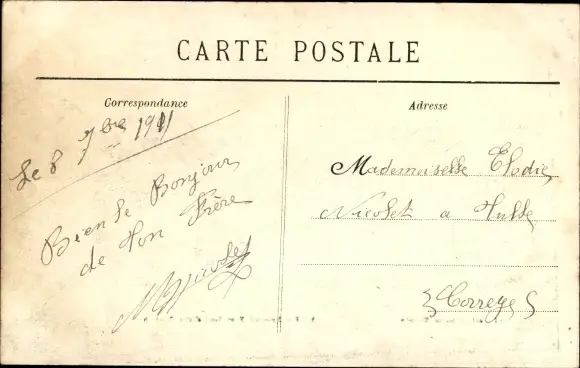 CARTE POSTALE
Correspondance
Adresse
Le 8 7bre 1911
Bien le Bonjour
de Ton Frère
Nicolet
Mademoiselle Elodie
Nicolet a Tulle
Correze